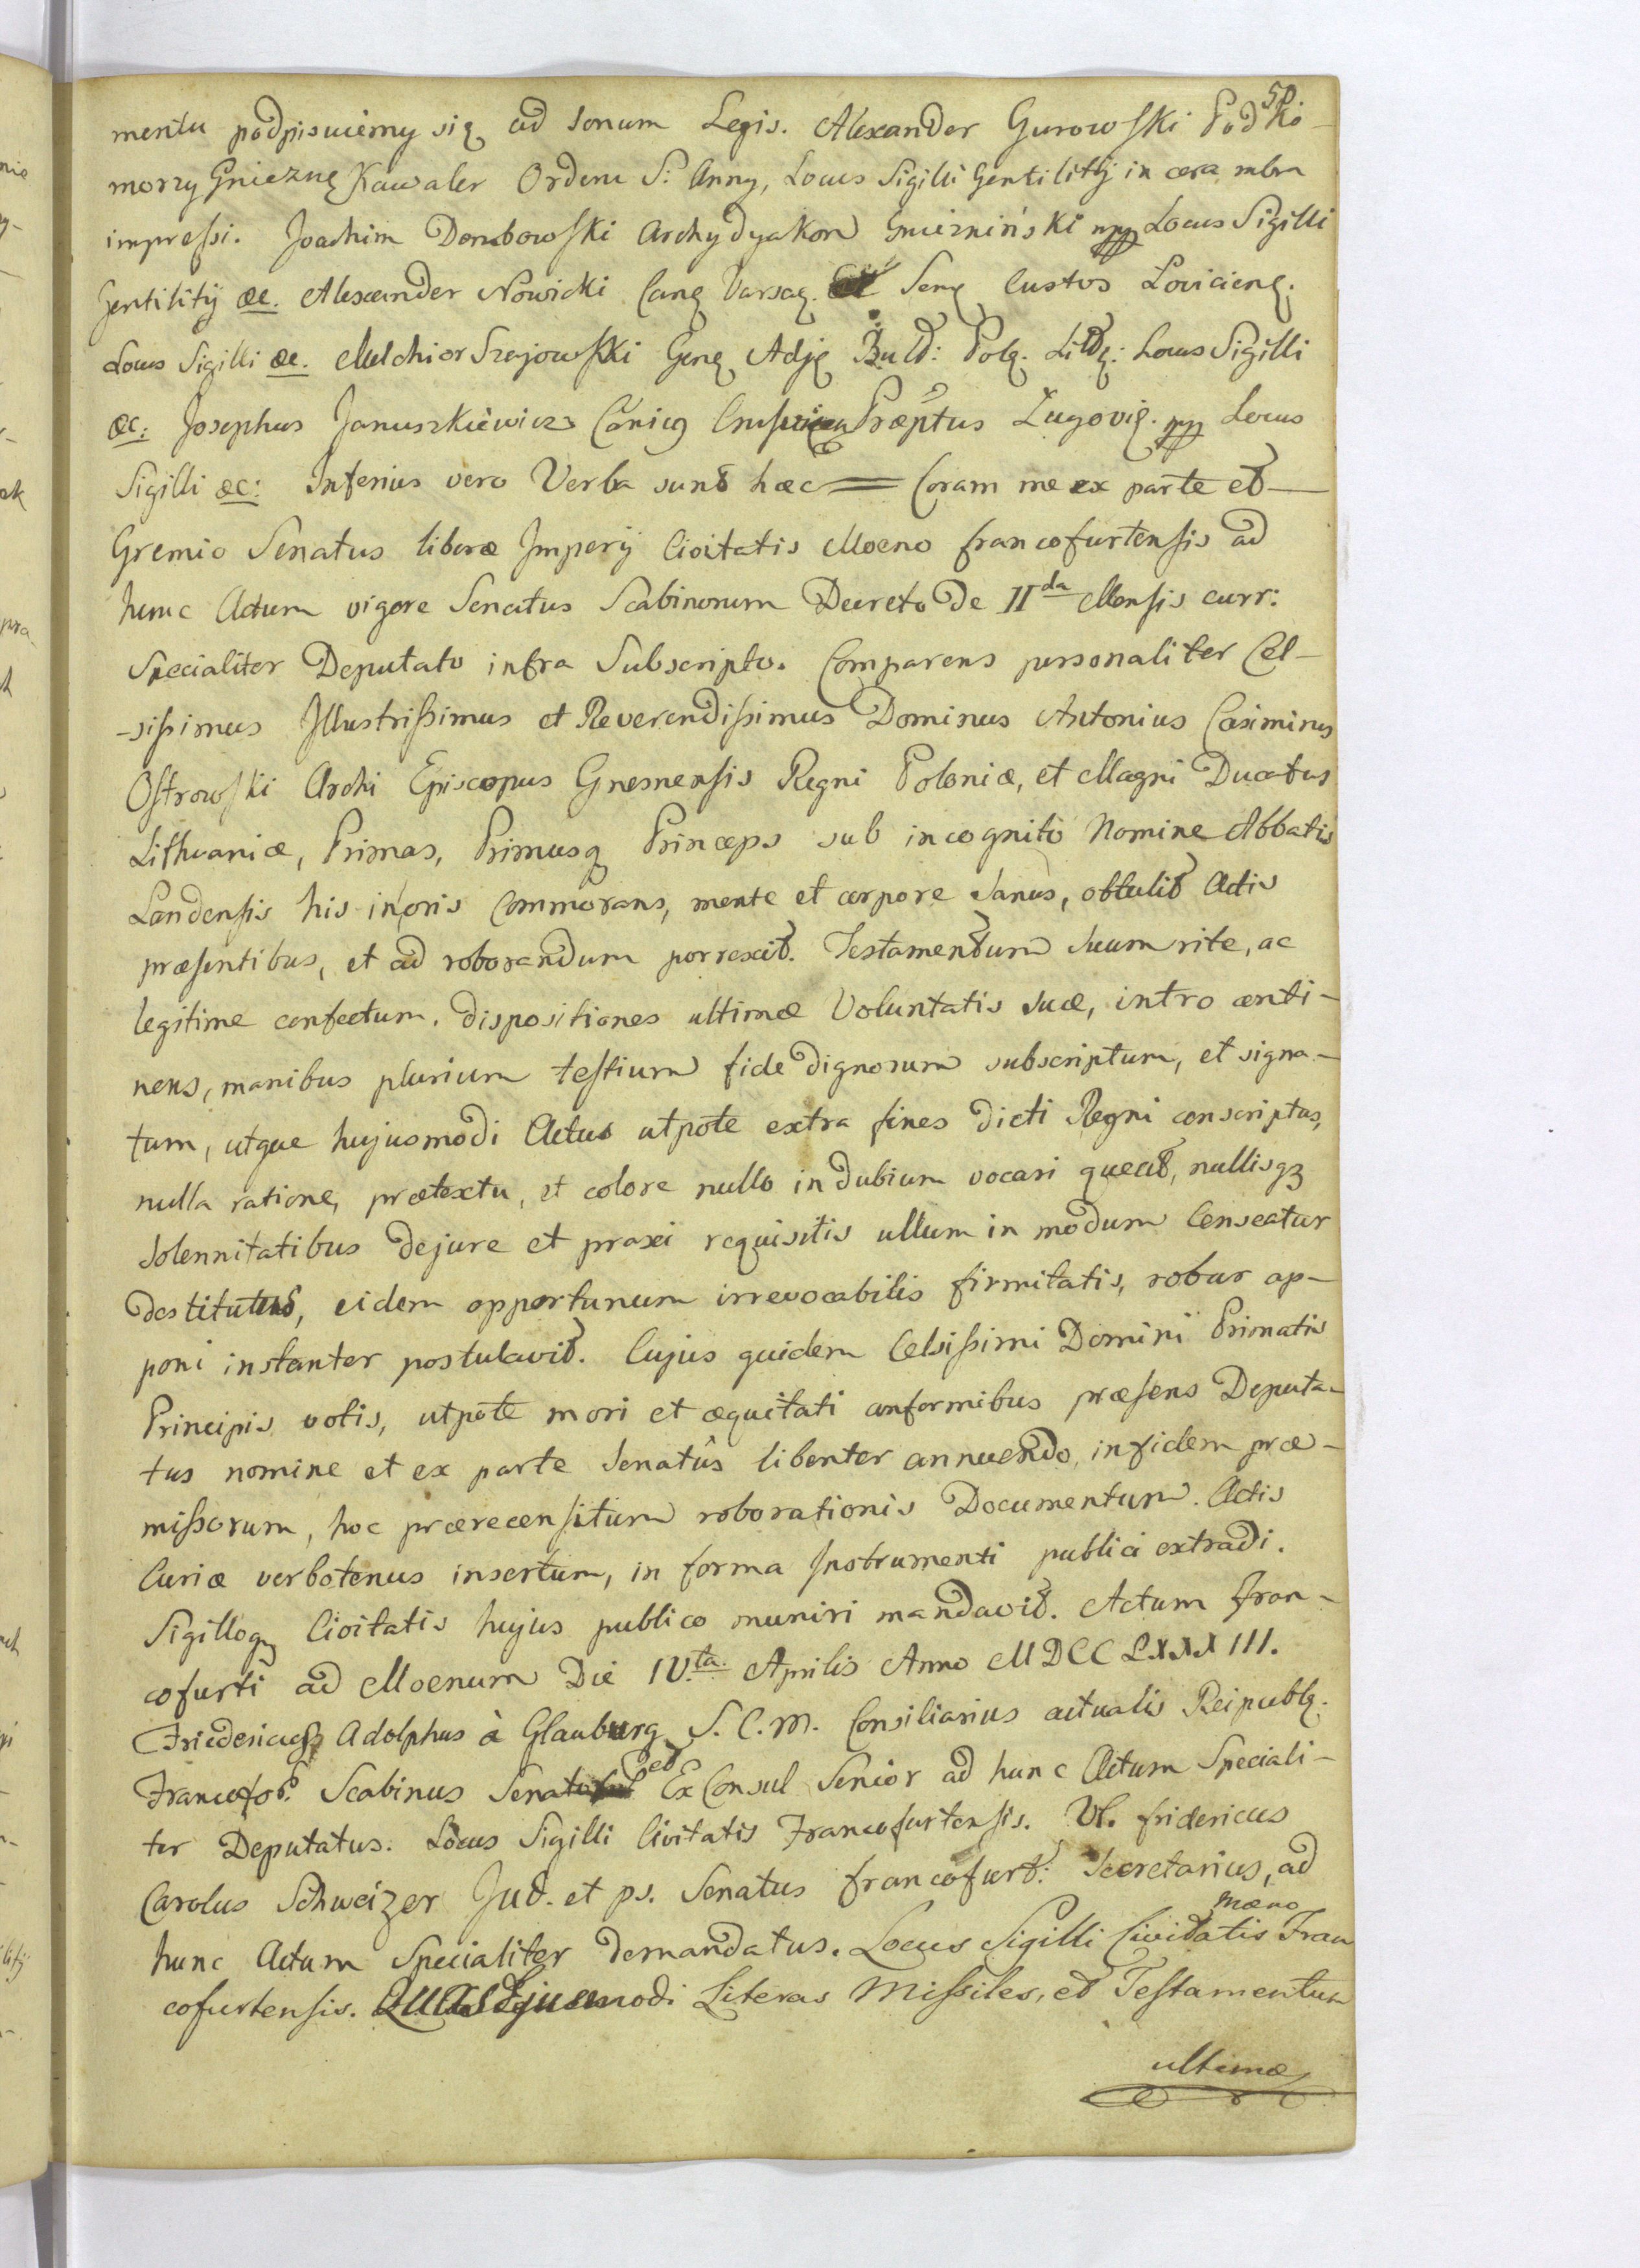 50
mentu podpisuiemy się ad sonum Legis. Alexander Gurowski Podko-
morzy Gniezn Kawaler Orderu S: Anny, Locus Sigilli Gentilitij in cera rubra
impressi. Joachim Dembowski Archydyakon Gniezniński mpp Locus Sigilli
Gentilitij &c. Alexander Nowicki Can Varsa. Sen Custos Lovicien.
Locus Sigilli &c. Melchior Szajowski Gen Adj Buld: Pol. Lit: Locus Sigilli
&c: Josephus Januszkiewicz Canic Præptus Zugovi. mpp Locus
Sigilli &c: Inferius vero Verba sunt hæc = Coram me ex parte et
Gremio Senatus liberæ Imperij Civitatis Moeno francofurtensis ad
hunc Actum vigore Senatus Scabinorum Decreto de II da Mensis curr:
Specialiter Deputato infra Subscripto. Comparens personaliter Cel-
-sissimus Illustrissimus et Reverendissimus Dominus Antonius Casimirus
Ostrowski Archi Episcopus Gnesnensis Regni Poloniæ, et Magni Ducatus
Lithvaniæ, Primas, Primusq Princeps sub incognito Nomine Abbatis
Landensis his in oris Commorans, mente et corpore sanus, obtulit Actis
præsentibus, et ad roborandum porrexit. Testamentum suum rite, ac
legitime confectum. dispositiones ultimæ Voluntatis suæ, intro conti-
nens, manibus plurium testium fide dignorum subscriptum, et signa-
tum, utque hujusmodi Actus utpote extra fines dicti Regni conscriptus,
nulla ratione, prætextu, et colore nullo in dubium vocari queat, nullisq3
solennitatibus dejure et praxi requisitis ullum in modum Censeatur
destitutus, eidem opportunum irrevocabilis firmitatis, robur ap-
poni instanter postulavit. Cujus quidem Celsissimi Domini Primatis
Principis votis, utpote mori et æquitati conformibus præsens Deputa-
tus nomine et ex parte Senatûs libenter annuendo, in fidem præ-
missorum, hoc prærecensitum roborationis Documentum. Actis
Curiæ verbotenus insertum, in forma Instrumenti publici extradi.
Sigilloq Civitatis hujus publico muniri mandavit. Actum Fran-
cofurti ad Moenum Die IV.ta Aprilis Anno MDCCLXXXIII.
Friedericus Adolphus à Glauburg S. C. M. Consiliarius actualis Reipubl.
Francofo. Scabinus Senator et Ex Consul Senior ad hunc Actum Speciali-
ter Deputatus. Locus Sigilli Civitatis Francofurtensis. Vl. fridericus
Carolus Schweizer Jud. et ps. Senatus francofurt: Secretarius, ad
hunc Actum Specialiter demandatus. Locus Sigilli Civitatis Moeno Fran
cofurtensis. Quas Ejusmodi Literas Missiles, et Testamentum
ultimæ